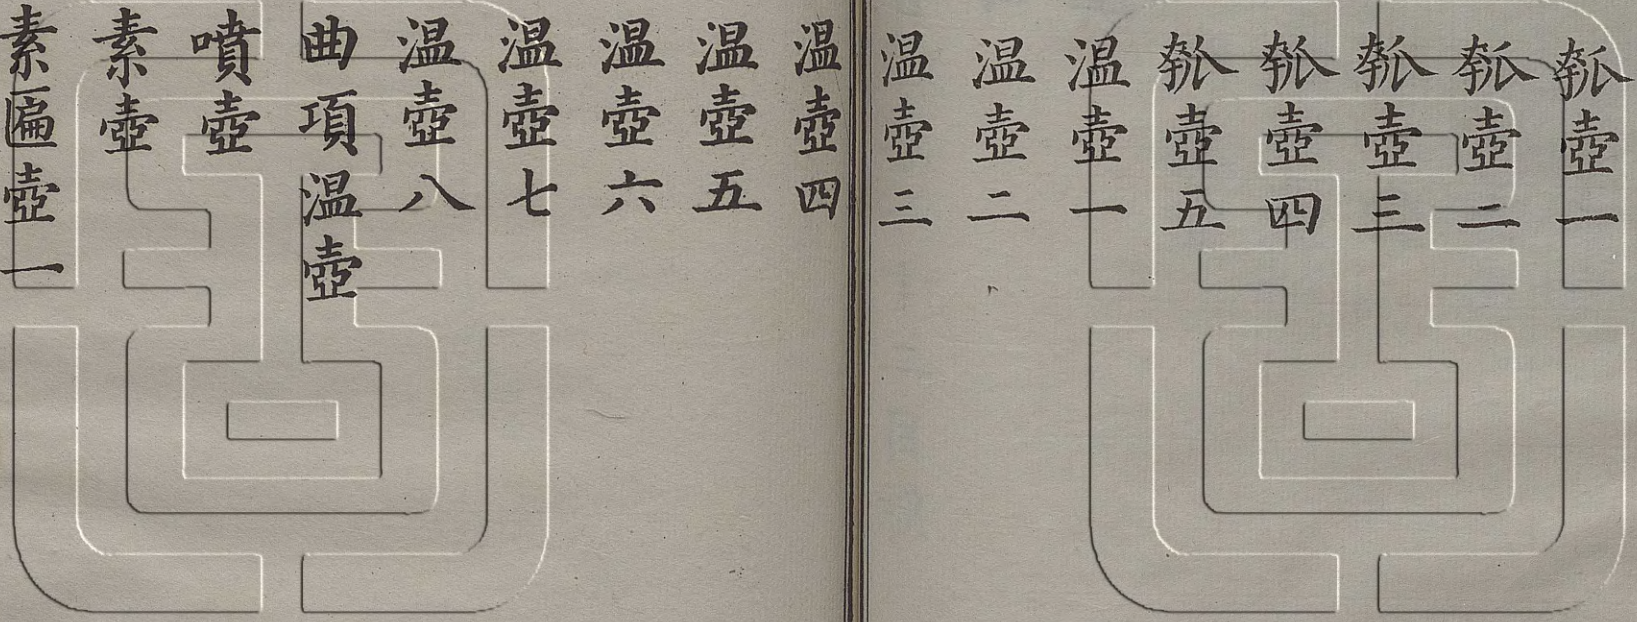 瓠壺一
瓠壺二
瓠壺三
瓠壺四
瓠壺五
温壺一
温壺二
温壺三
温壺四
温壺五
温壺六
温壺七
温壺八
曲項温壺
噴壺
素壺
素匾壺一